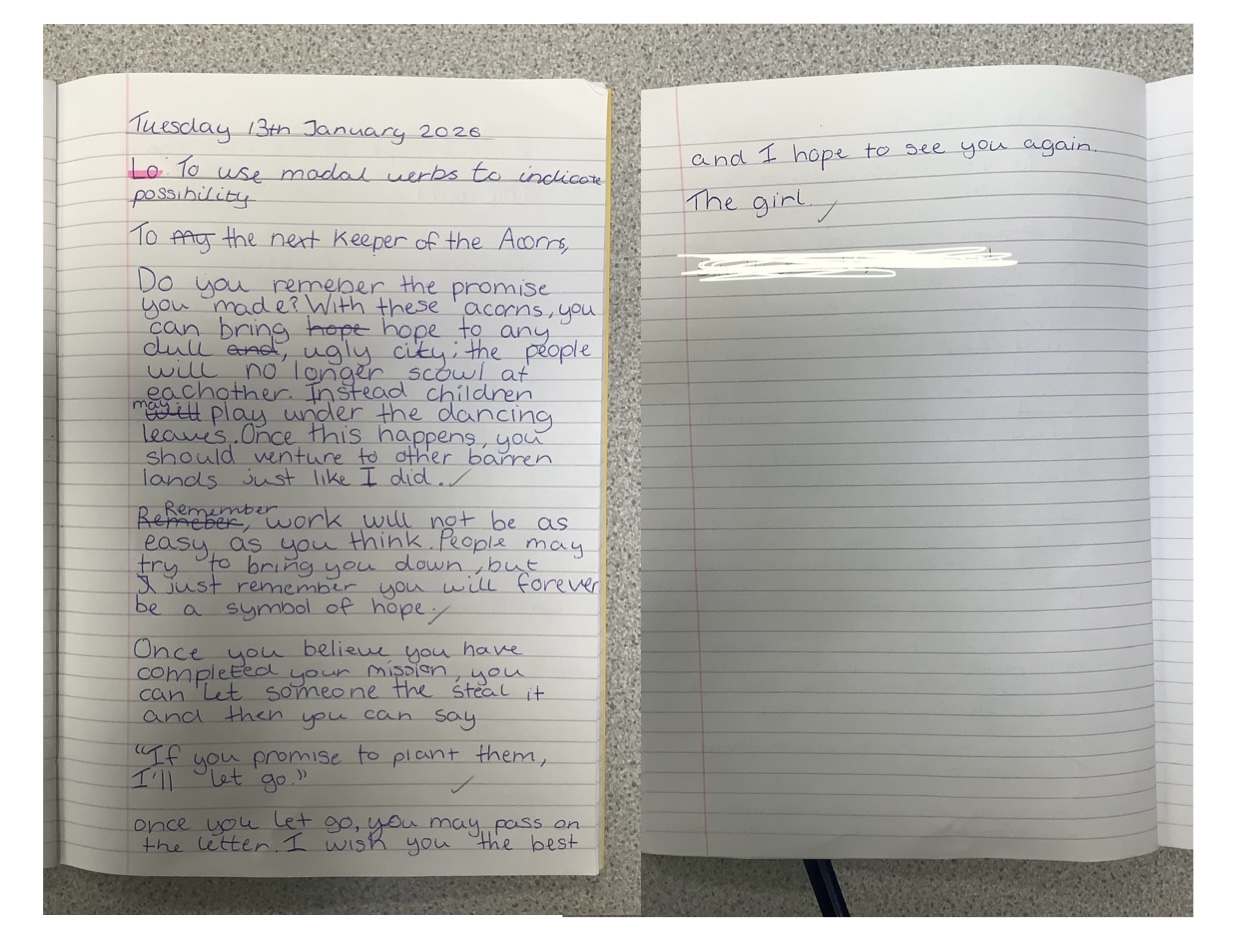 Tuesday 13th January 2026
Lo: To use modal verbs to indicate
possibility
To my the next Keeper of the Acorns,
Do you remeber the promise
you made? With these acorns, you
can bring hope hope to any
dull and, ugly city; the people
will no longer scowl at
eachother. Instead children
may will play under the dancing
leaves. Once this happens, you
should venture to other barren
lands just like I did.
Remember
Remeber, work will not be as
easy as you think. People may
try to bring you down, but
I just remember you will forever
be a symbol of hope.
Once you believe you have
completed your mission, you
can let someone the steal it
and then you can say
"If you promise to plant them,
I'll let go."
once you let go, you may pass on
the letter. I wish you the best
and I hope to see you again.
The girl.